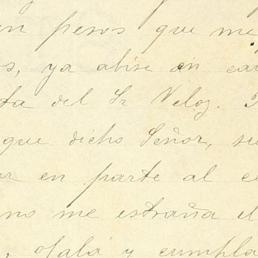 en pesos que me
os, ya abise en car
ta del Sr Veloz.
que dicho Señor, su
or en parte al co
no me estraña el
, ojalá y cumpla